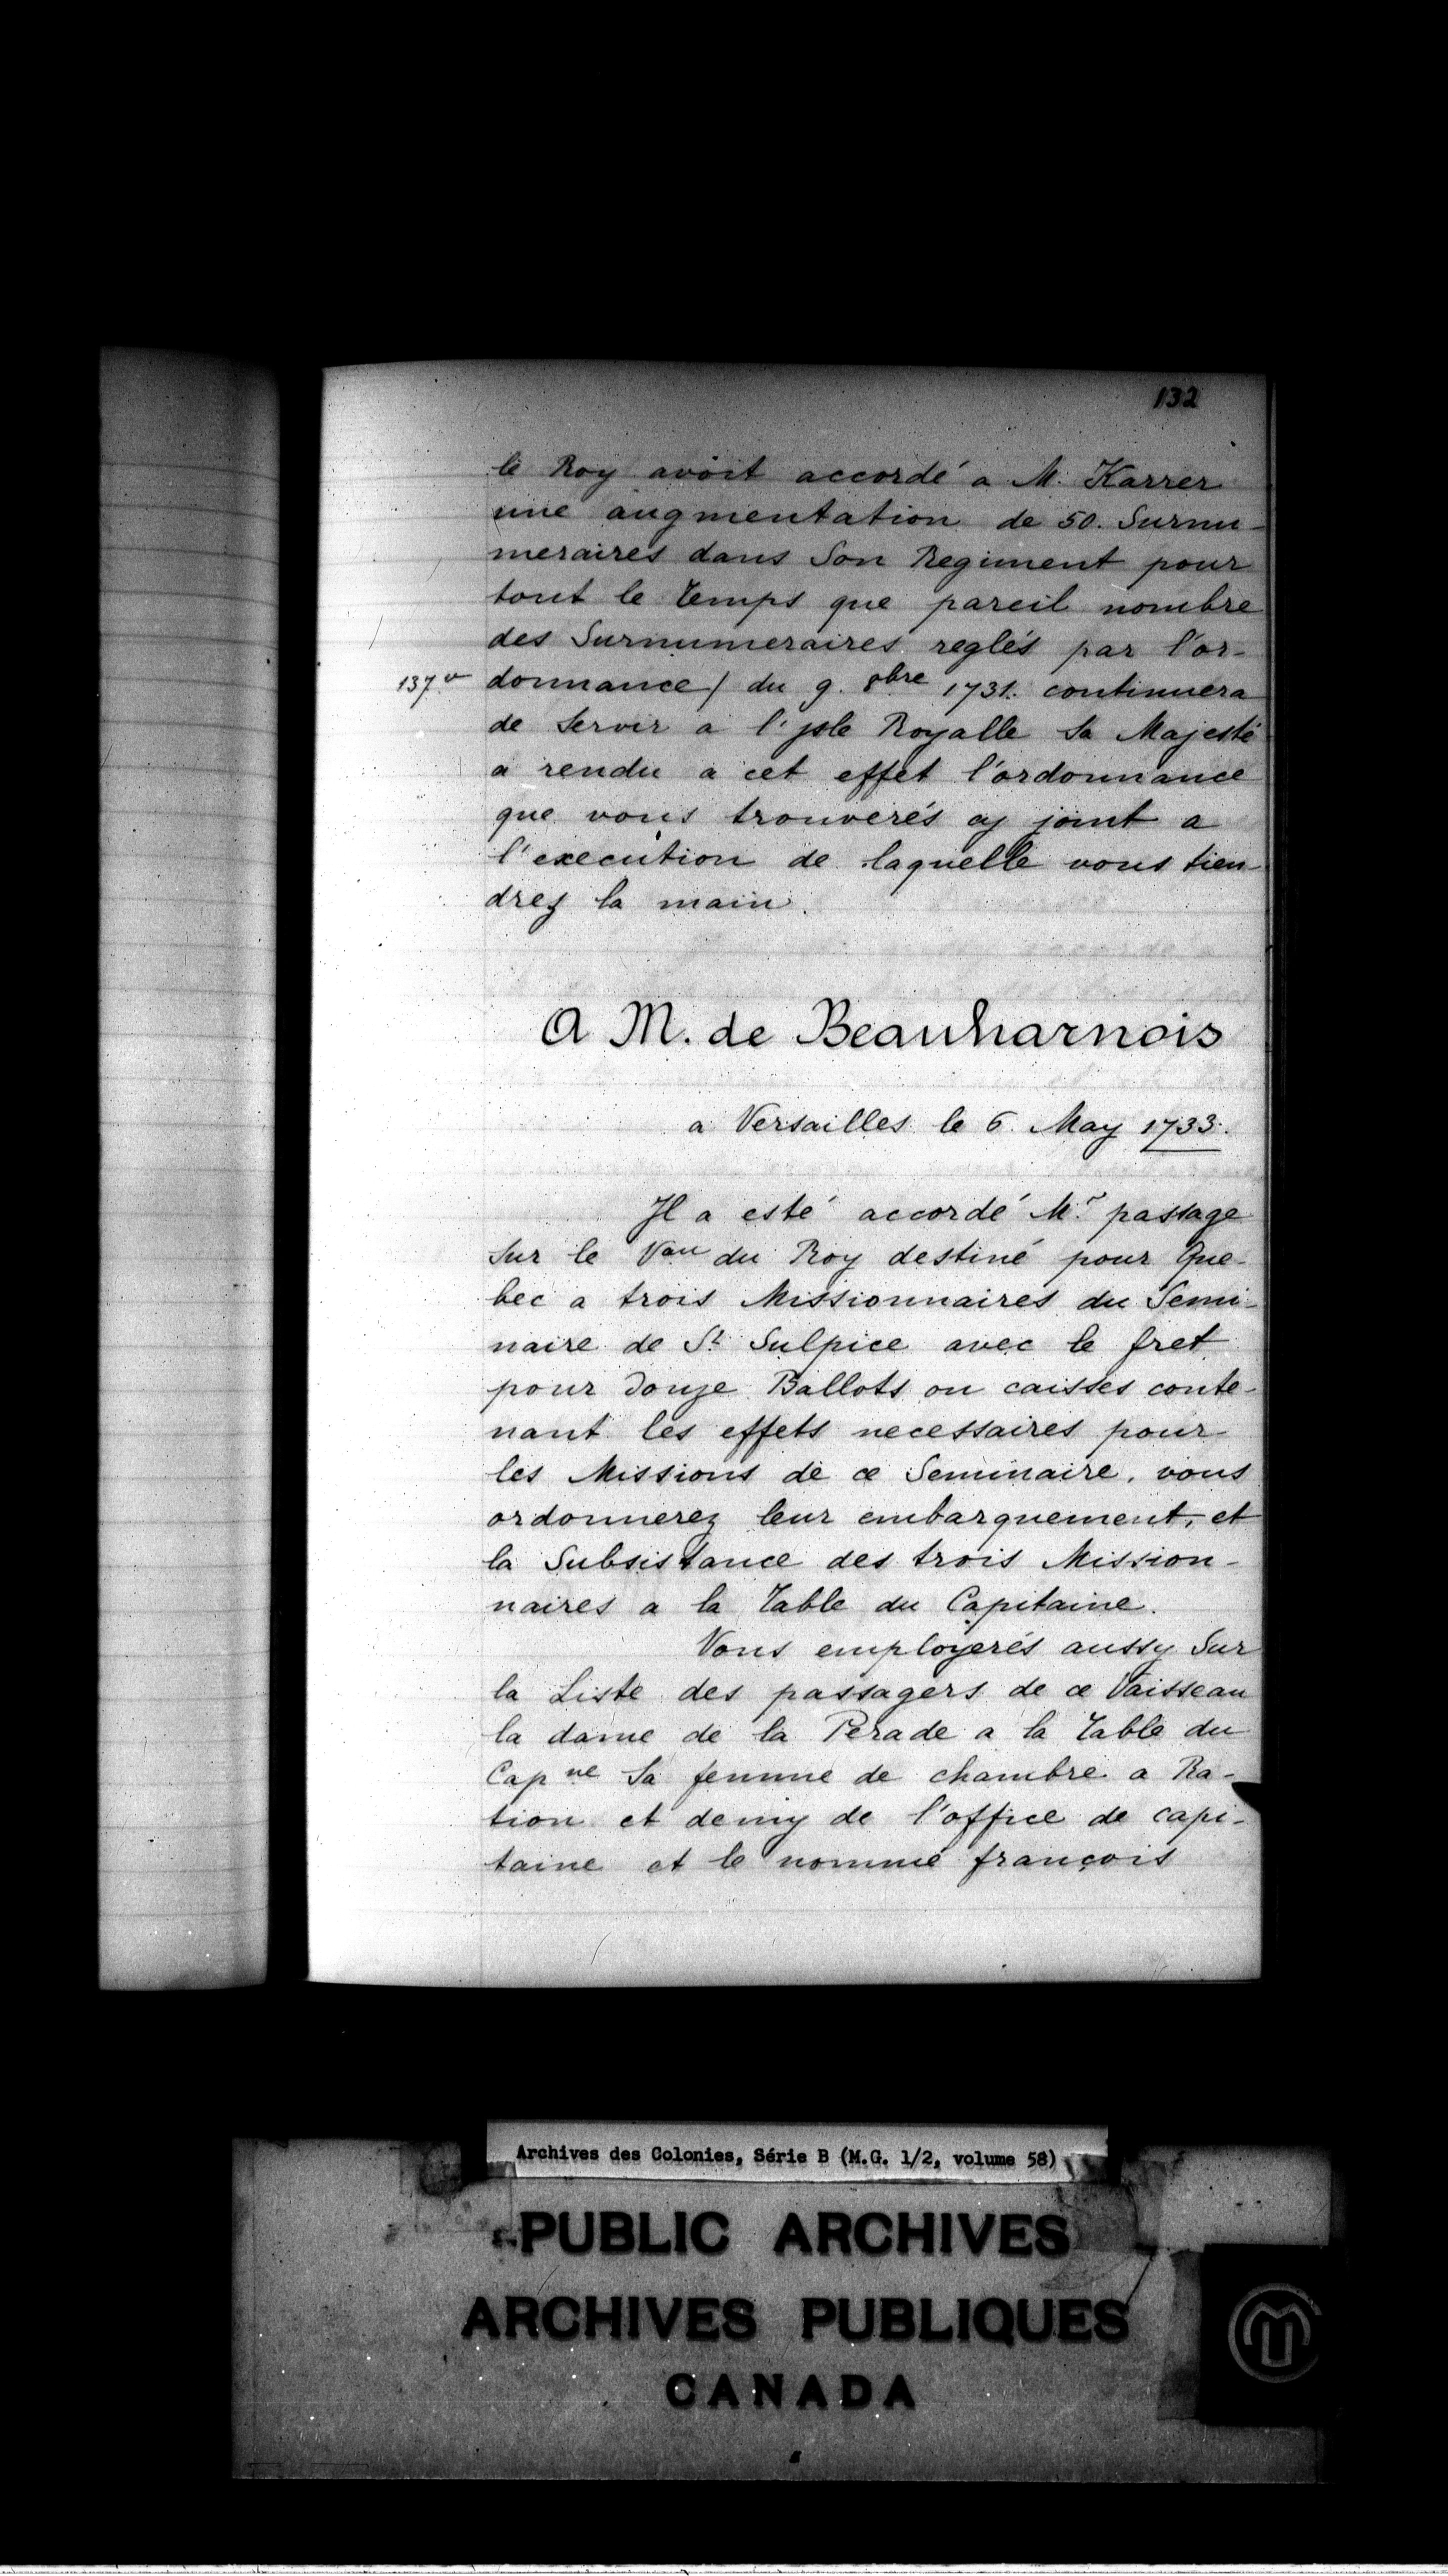 132
le Roy avoit accordé a M. Karrer
une augmentation de 50. Surnu-
meraires dans Son Regiment pour
tout le temps que pareil nombre
des Surnumeraires reglés par l'or-
137 v donnance / du 9. 8bre 1731. continuera
de servir a l'jsle Royalle Sa Majesté
a rendu a cet effet l'ordonnance
que vous trouverés cy joint a
l'execution de laquelle vous tien-
drez la main.
A M. de Beauharnois
a Versailles le 6. May 1733.
Jl a esté accordé Mr passage
Sur le Vau du Roy destiné pour Que-
bec a trois Missionnaires du Semi-
naire de St Sulpice avec le fret
pour douze Ballots ou caisses conte-
nant les effets necessaires pour
les Missions de ce Seminaire, vous
ordonnerez leur embarquement, et
la Subsistance des trois Mission-
naires a la Table du Capitaine.
Vous employerés aussy Sur
la Liste des passagers de ce Vaisseau
la dame de la Perade a la Table du
Capne Sa femme de chambre a Ra-
tion et demy de l'office de capi-
taine et le nommé françois
Archives des Colonies, Série B (M.G. 1/2, volume 58)
PUBLIC ARCHIVES
ARCHIVES PUBLIQUES
CANADA